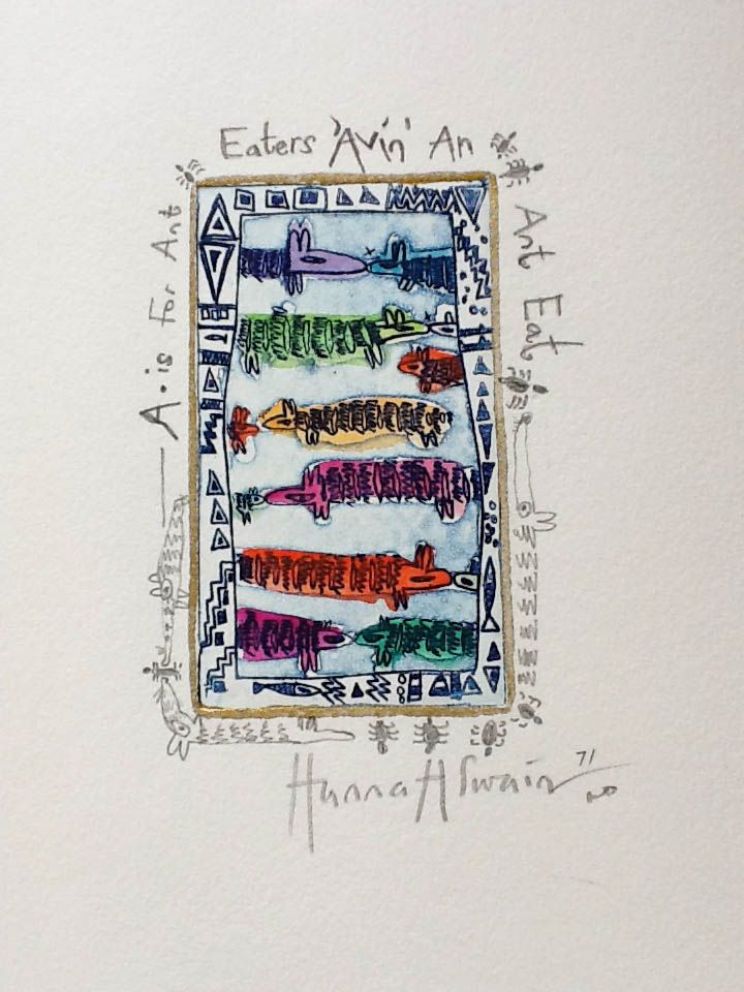 A · is For Ant
Eaters 'Avin' An
Ant Eat
Hannah Swain
71